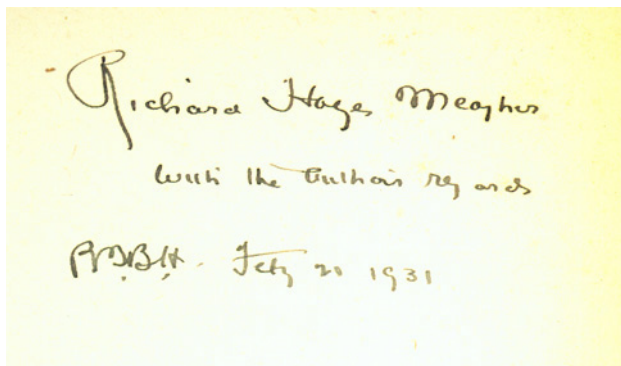 Richard Hayes Meagher
with the Author's regards
R.B.B.H. Feby 20 1931